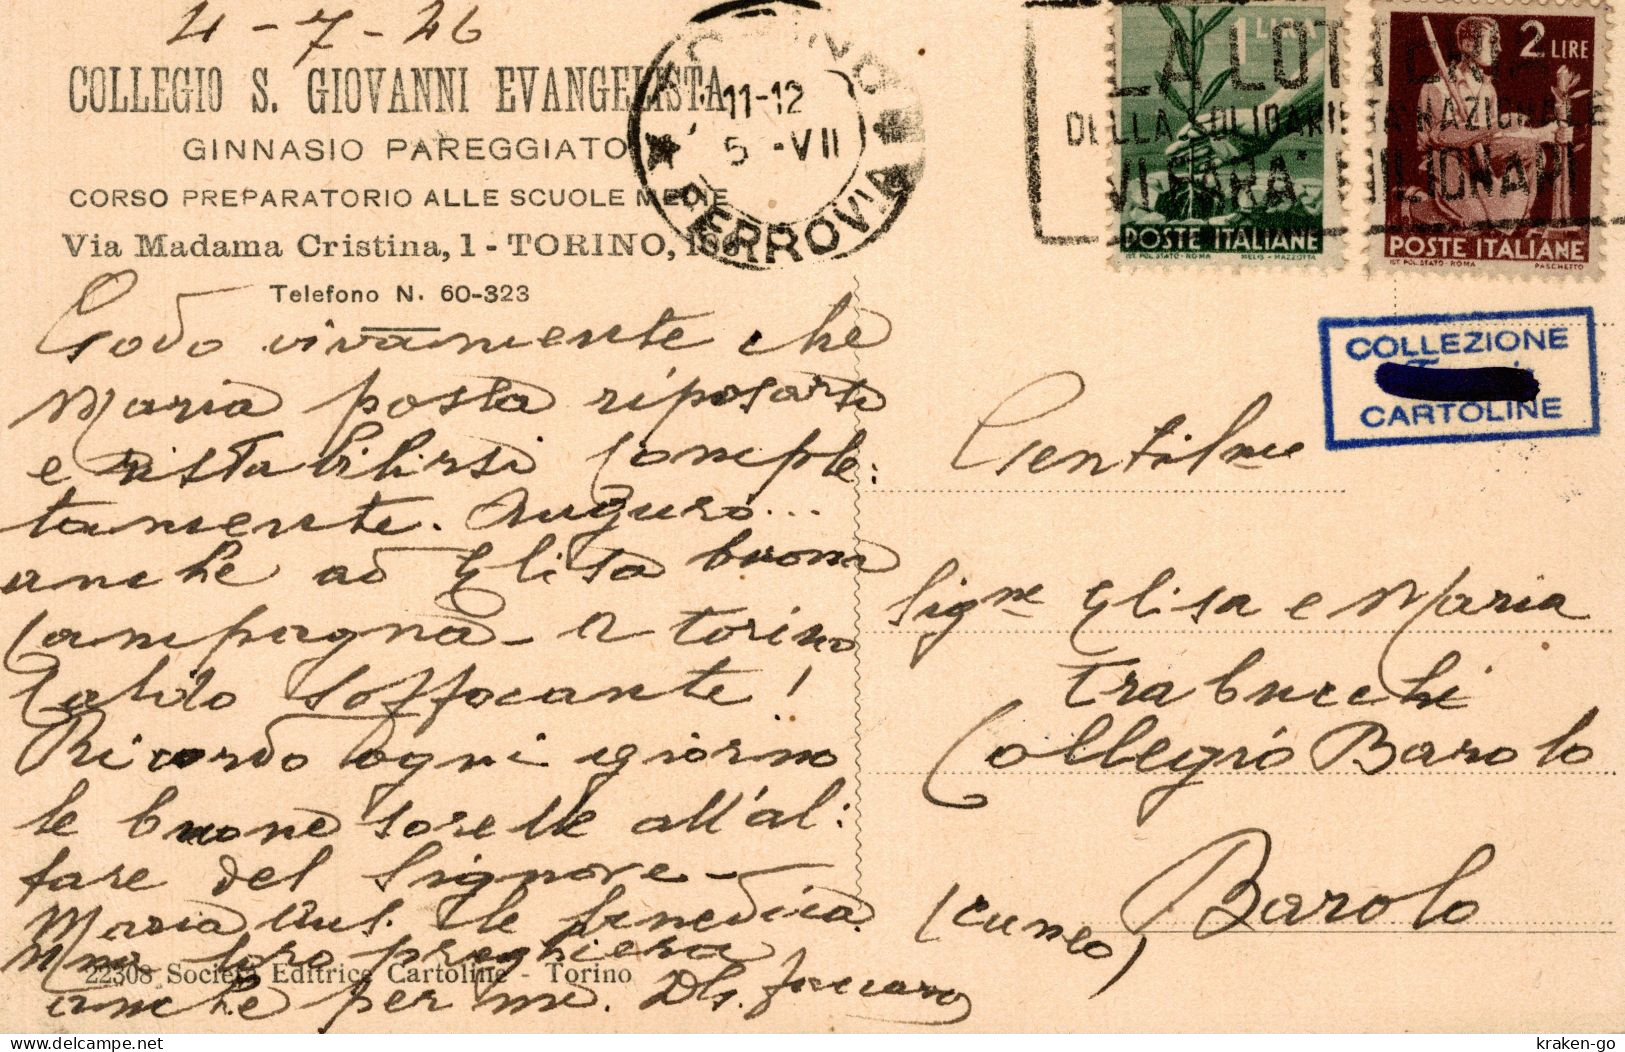 4-7-46
COLLEGIO S. GIOVANNI EVANGELISTA
GINNASIO PAREGGIATO
CORSO PREPARATORIO ALLE SCUOLE MEDIE
Via Madama Cristina, 1 - TORINO, 106
Telefono N. 60-323
TORINO
11-12
5 -VII
FERROVIA
LA LOTTERIA
DELLA SOLIDARIETA NAZIONALE
VI FARA' MILIONARI
1 LIRA
POSTE ITALIANE
IST. POL. STATO - ROMA MELIS - MAZZOTTA
2 LIRE
POSTE ITALIANE
IST. POL. STATO - ROMA PASCHETTO
COLLEZIONE
CARTOLINE
Godo vivamente che
Maria possa riposarsi
e ristabilirsi comple:
tamente. Auguro...
anche ad Elisa buona
campagna - A Torino
caldo soffocante!
Ricordo ogni giorno
le buone sorelle all'al:
tare del Signore -
Maria Aus. le benedica.
Una loro preghiera
anche per me.
22308 Società Editrice Cartoline - Torino
Gentilme
Signe Elisa e Maria
Trabucchi
Collegio Barolo
Barolo
(Cuneo)
kraken-go
delcampe.net